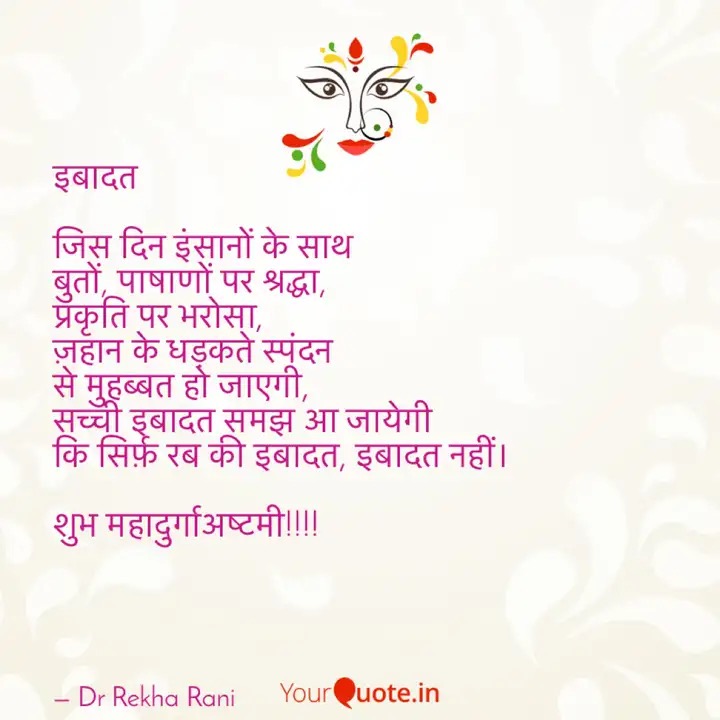 इबादत
जिस दिन इंसानों के साथ
बुतों, पाषाणों पर श्रद्धा,
प्रकृति पर भरोसा,
ज़हान के धड़कते स्पंदन
से मुहब्बत हो जाएगी,
सच्ची इबादत समझ आ जायेगी
कि सिर्फ़ रब की इबादत, इबादत नहीं।
शुभ महादुर्गाअष्टमी!!!!
– Dr Rekha Rani
YourQuote.in